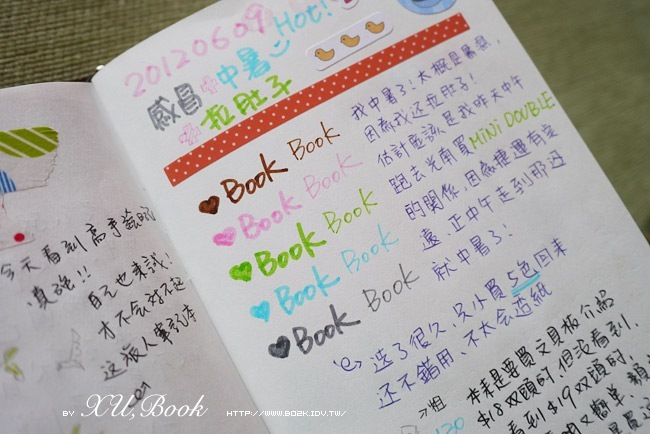 今天看到高手
真強!!
自己也來試!
才不會對不起
這旅人筆記本
20120609 Hot!
感冒+中暑
+拉肚子
Book Book
Book Book
Book Book
Book Book
Book Book
我中暑了!大概是暑氣,
因為我還拉肚子!
估計應該是我昨天中午
跑去光南買MiNi DOUBLE
的關係,因為捷運有夠
遠,正中午走到那邊
就中暑了!
選了很久,只小買5色回來
還不錯用、不太會透紙
本來是要買文具板介紹
$18双頭的,但沒看到,
看到$19双頭的,
又簡單,
→粗
BY XU,Book HTTP://WWW.BOZK.IDV.TW/